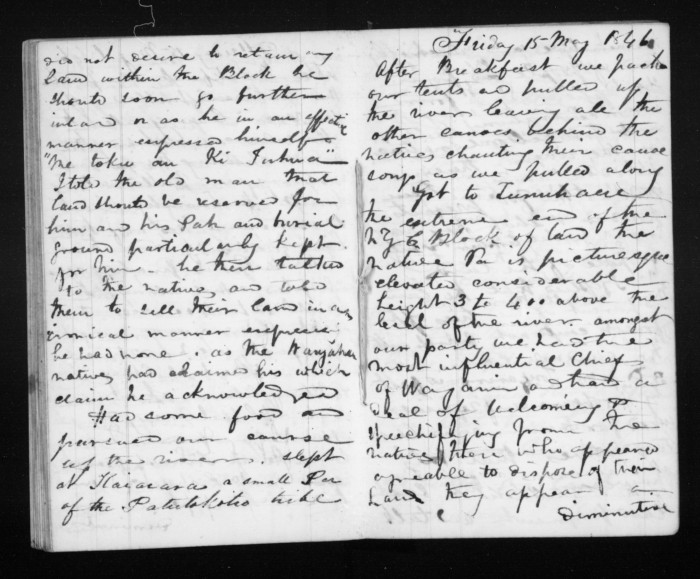 did not desire to retain any
Land within the Block he
should soon go further
inland or as he in an affecting
manner expressed himself
"Me toku au Ki Tuhua"
I told the old man that
land should be reserved for
him and his Pah and burial
ground particularly kept
for him – he then talked
to the natives and told
them to sell their land in a
ironical manner
he had none. as the Wanganui
natives had claimed his which
claim he acknowledged
Had some food and
pursued our course
up the river. slept
at a small Pa
of the Patutokotoko tribe
Friday 15 May 1846
After Breakfast we packed
our tents and pulled up
the river leaving all the
other canoes behind the
natives chanting their canoe
songs as we pulled along
Got to
the extreme end of the
NZC Block of land the
native Pa is picturesque
elevated considerable
height 3 to 400 above the
level of the river amongst
our party we had the
most influential Chief
of Wanganui and had a
deal of welcoming &
speechifying from the
natives there who appeared
agreeable to dispose of their
Land they appear a
diminutive